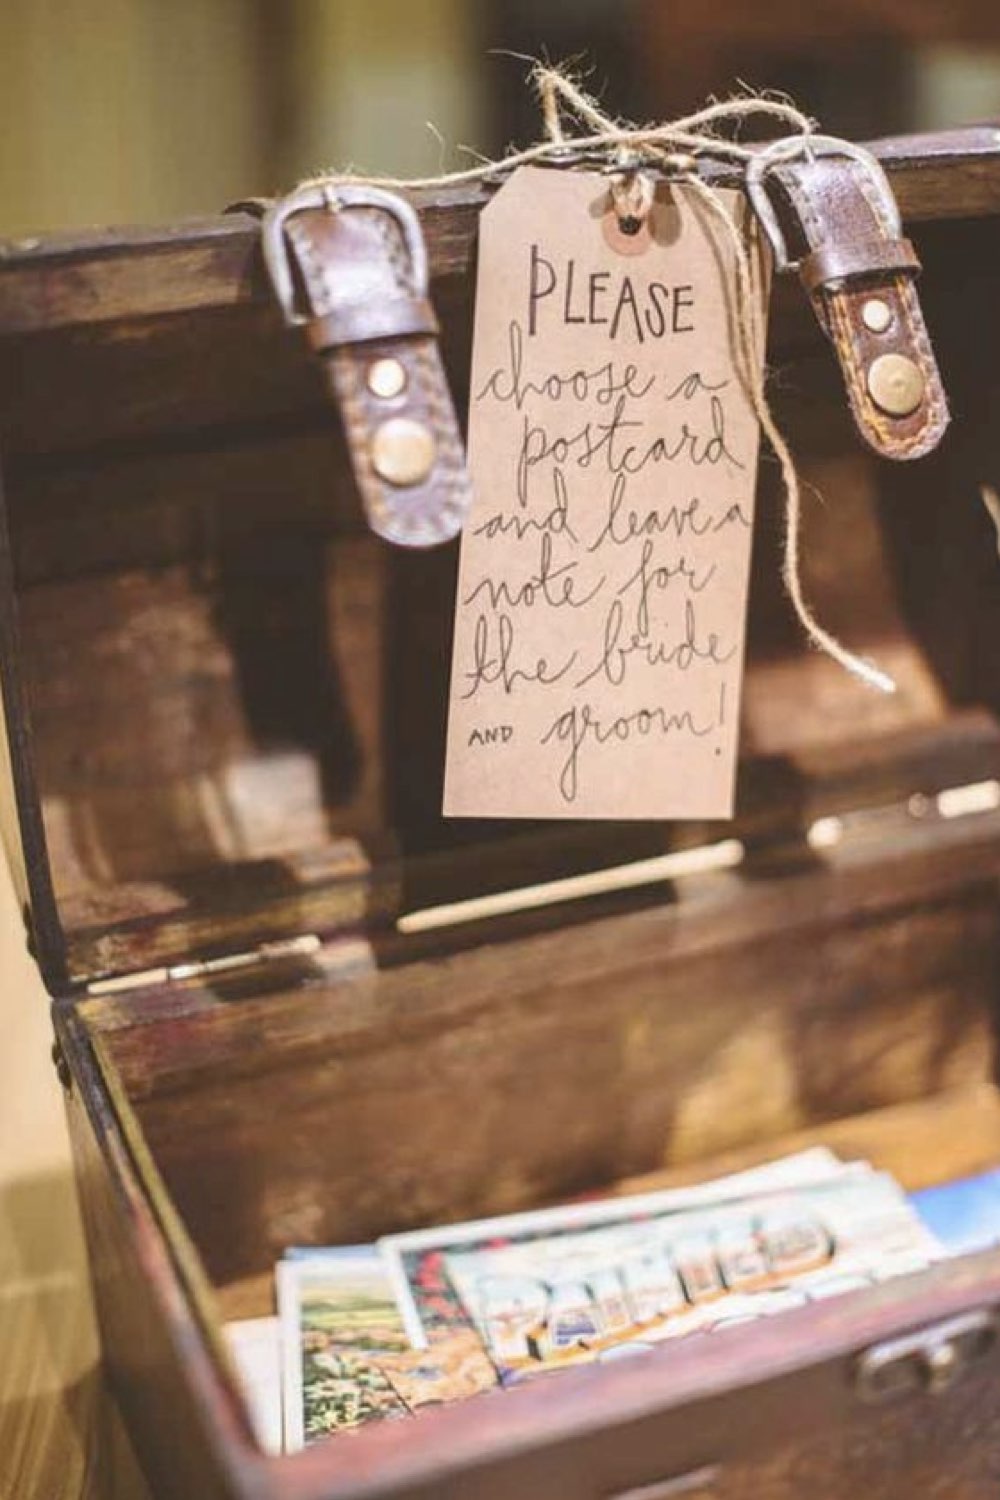 PLEASE
choose a
postcard
and leave a
note for
the bride
AND groom!